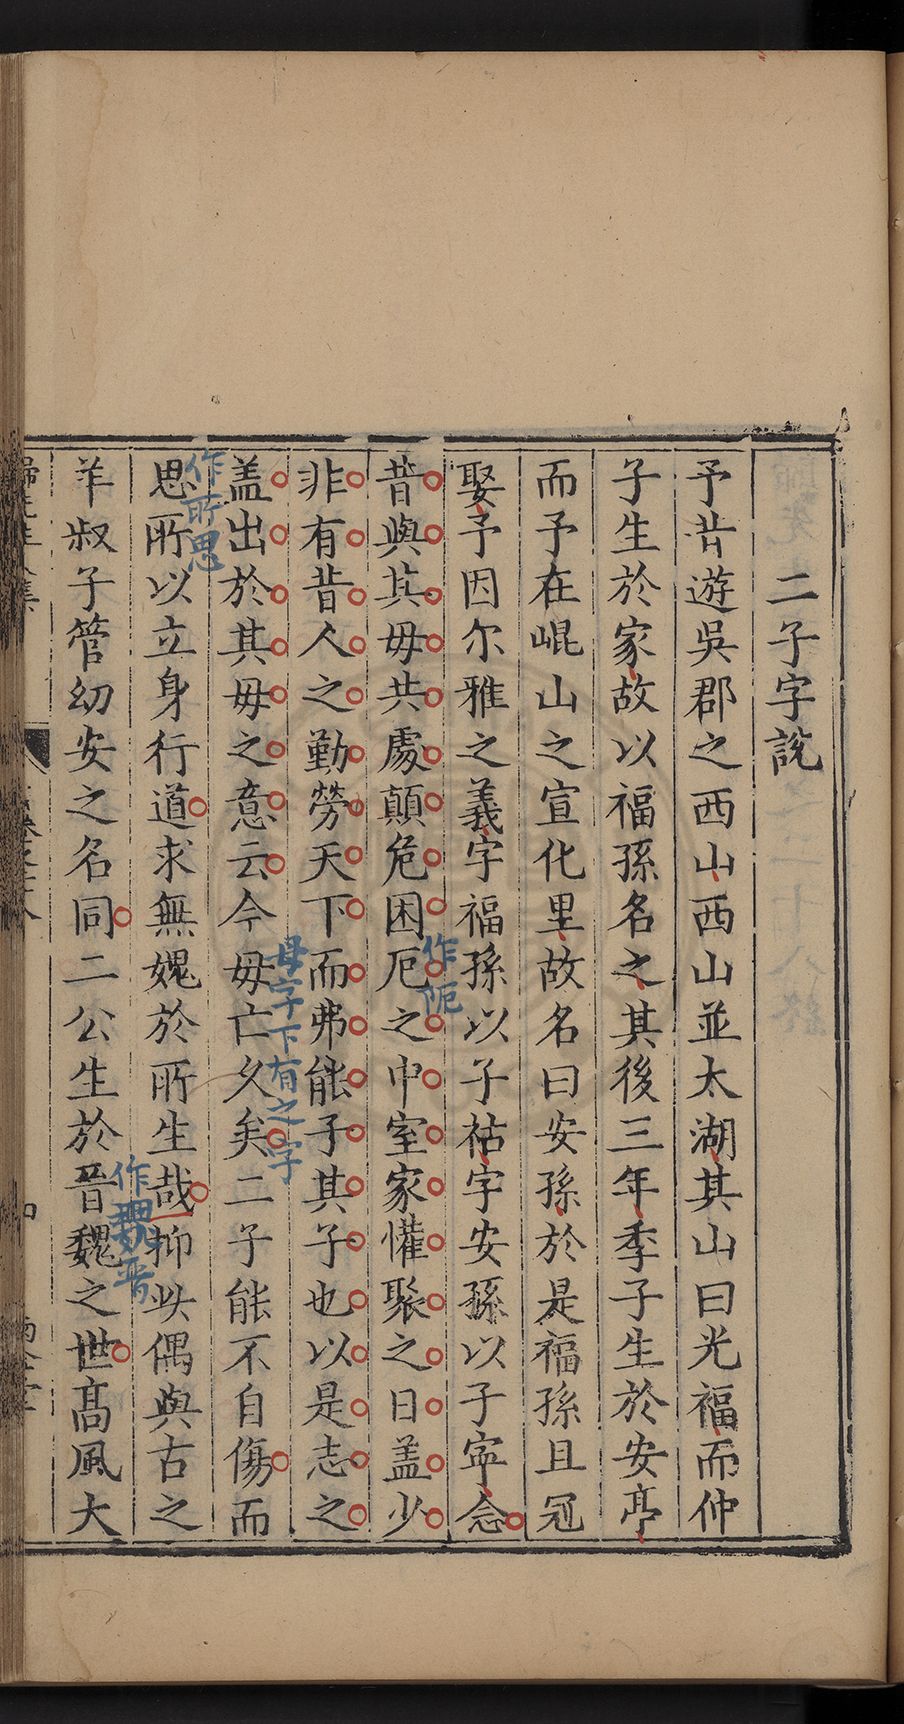 二子字說
予昔遊吳郡之西山西山並太湖其山曰光福而仲
子生於家故以福孫名之其後三年季子生於安亭
而予在崐山之宣化里故名曰安孫於是福孫且冠
娶予因尔雅之義字福孫以子祜字安孫以子寜念
昔與其母共處顛危困厄之中室家懽聚之日盖少
作阨
非有昔人之勤勞天下而弗能子其子也以是志之
盖出於其母之意云今母亡久矣二子能不自傷而
母字下有之字
思所以立身行道求無媿於所生哉抑此偶與古之
作所思
羊叔子管幼安之名同二公生於晉魏之世髙風大
作魏晉